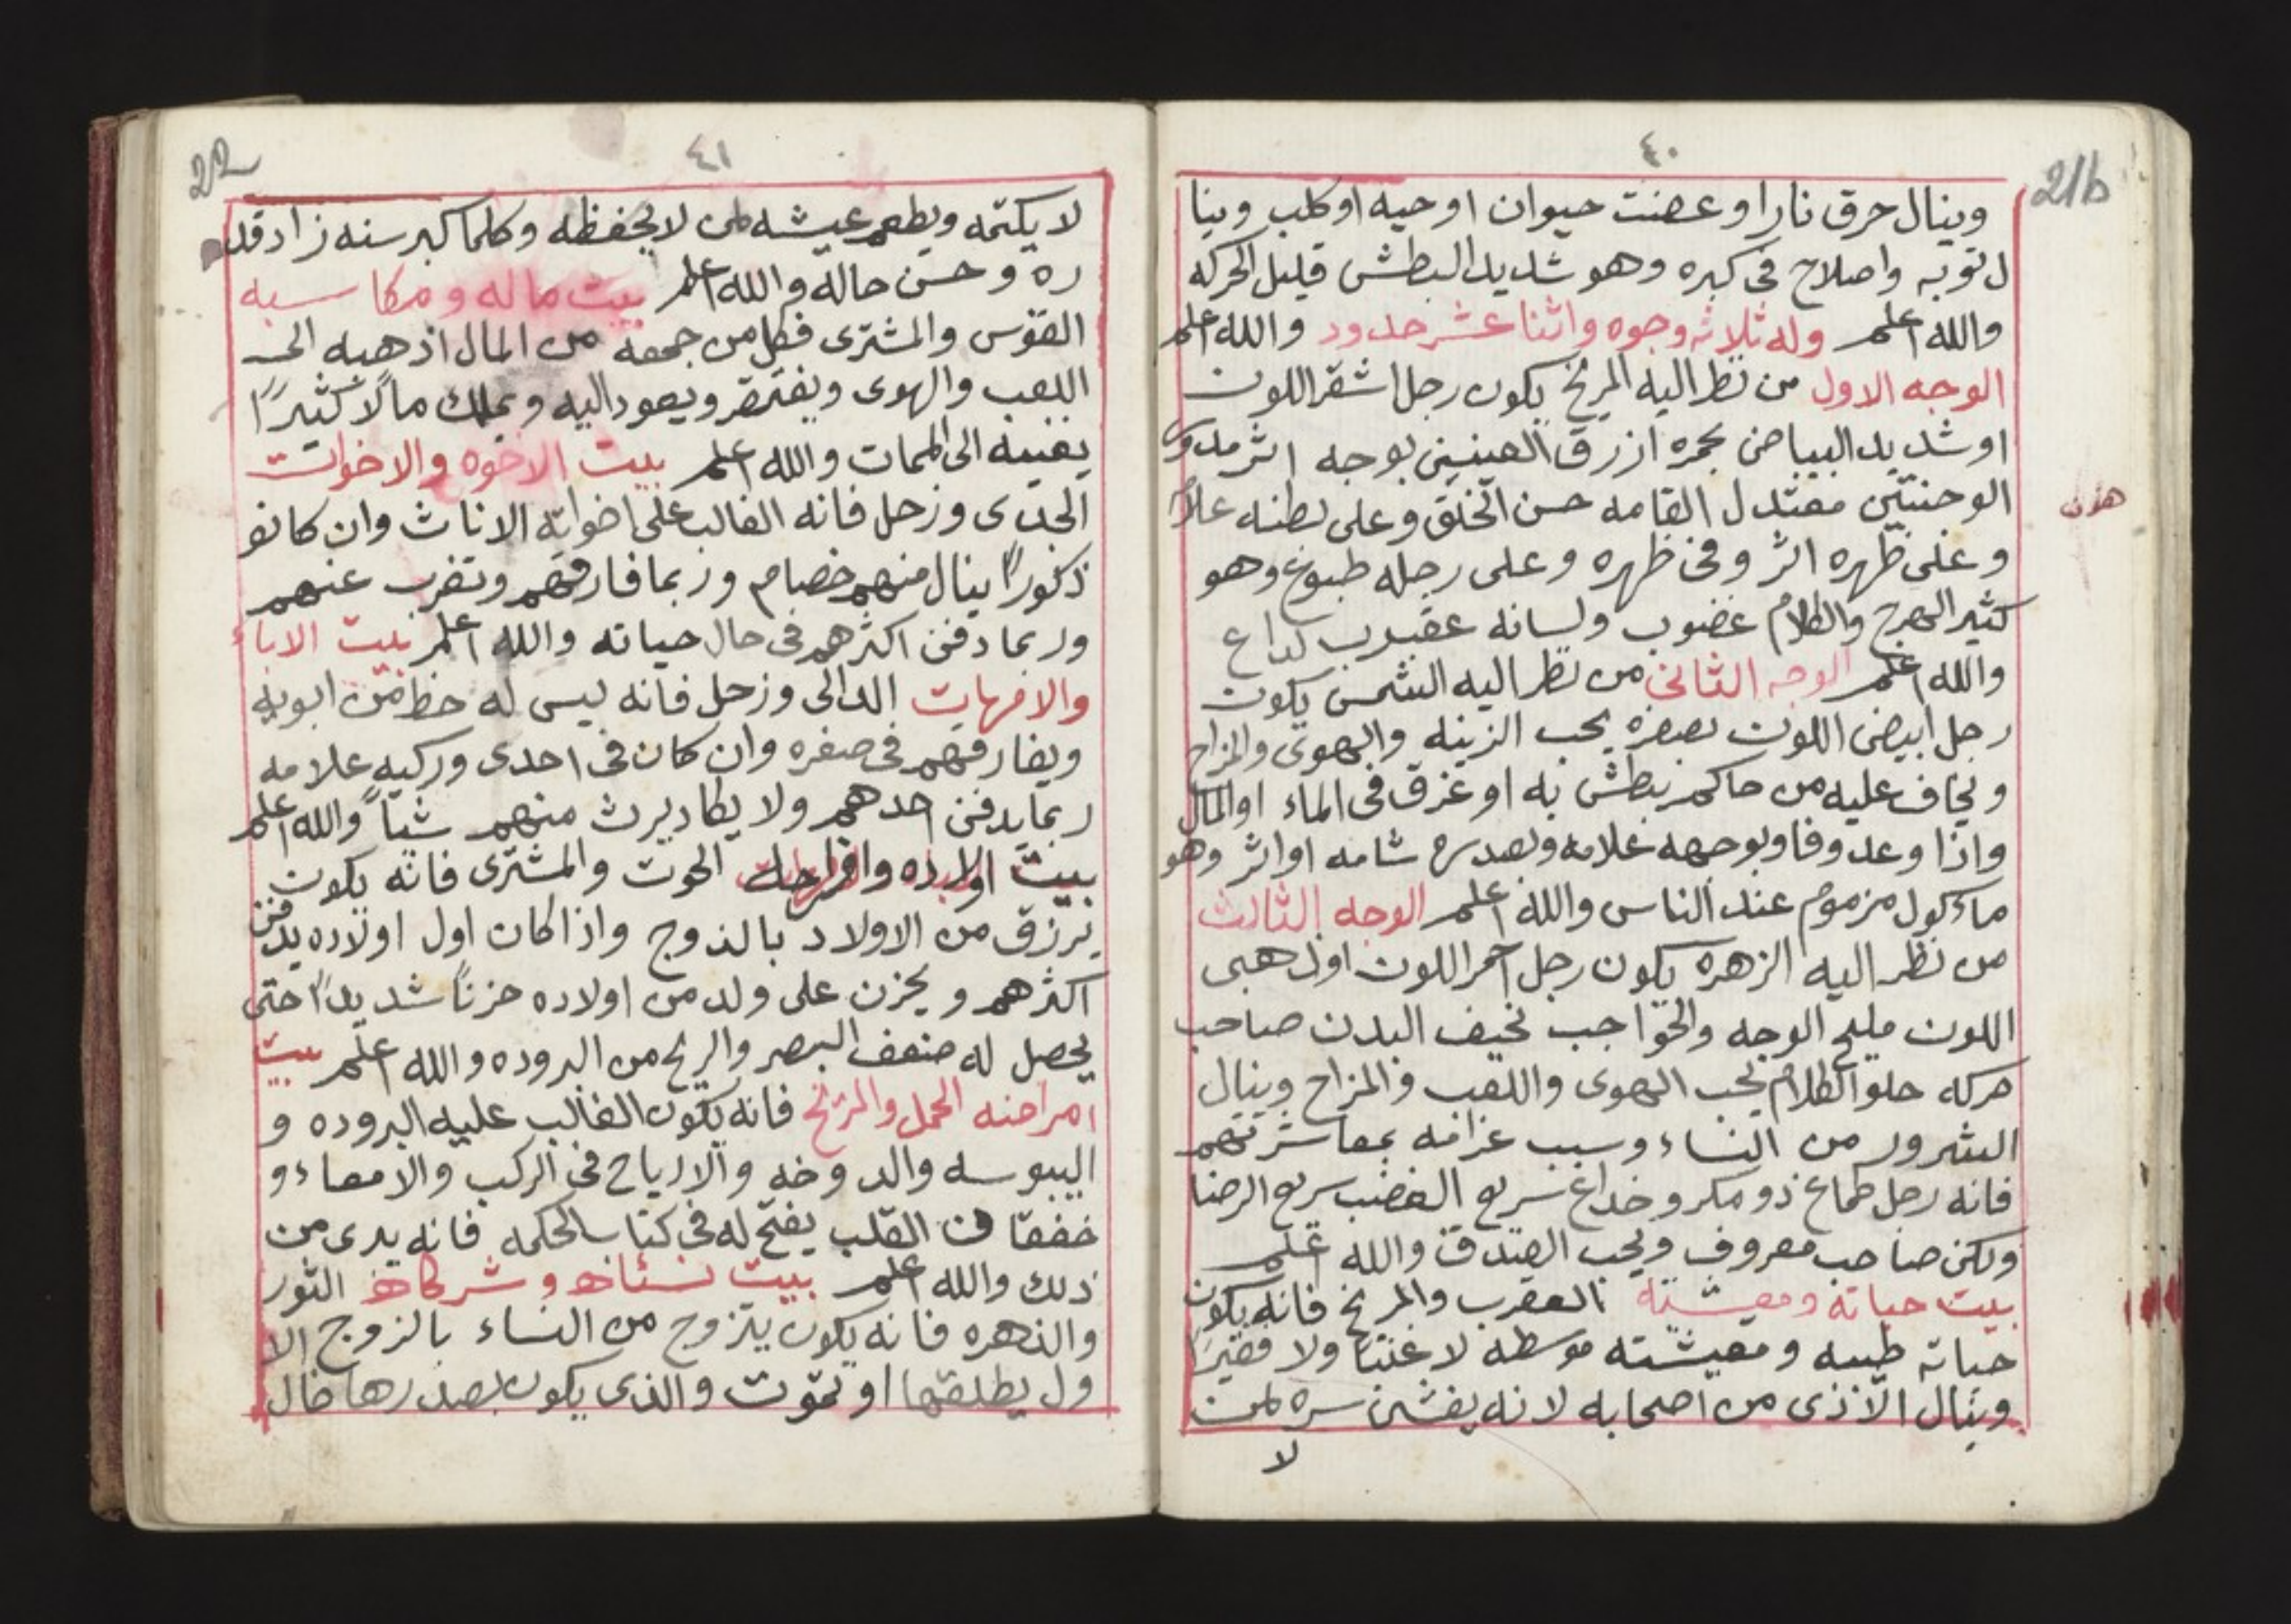 ٤٠
21b
وينال حرق نار او عضت حيوان او حيه او كلب وينا
ل توبه واصلاح فى كبره وهو شديد البطش قليل الحركه
والله اعلم وله ثلاثه وجوه واثنا عشر حدود والله اعلم
الوجه الاول من نظر اليه المريخ يكون رجل اشقر اللون
او شديد البياض بحمره ازرق العينين بوجه اثر مدور
الوجنتين معتدل القامه حسن الخلق وعلى بطنه علامه
وعلى ظهره اثر وفى ظهره وعلى رجله طبوع وهو
كثير الهرج والكلام غضوب ولسانه عقبرب لداع
والله اعلم الوجه الثانى من نظر اليه الشمس يكون
رجل ابيض اللون بصفره يحب الزينه والهوى والمزاح
ويخاف عليه من حاكم يبطش به او غرق فى الماء او المال
واذا وعد وفا وبوجهه علامه وبصدره شامه او اثر وهو
ماكول مزموم عند الناس والله اعلم الوجه الثالث
من نظر اليه الزهره يكون رجل احمر اللون او ذهبى
اللون مليح الوجه والحواجب نحيف البدن صاحب
حركه حلو الكلام يحب الهوى واللعب والمزاح وينال
الشرور من النساء وسبب غرامه بمعاشرتهم
فانه رجل طماع ذو مكر وخداع سريع الغضب سريع الرضا
ولكن صاحب معروف ويحب الصدق والله اعلم
بيت حياته ومعيشته العقرب والمريخ فانه يكون
حياته طيبه ومعيشته موسطه لا غنيا ولا فقيرًا
وينال الاذى من اصحابه لانه يفشى سره لمن
لا
٤١
22
لا يكتمه ويطعم عيشه لمن لا يحفظه وكلما كبر سنه زاد قد
ره وحسن حاله والله اعلم بيت ماله ومكاسبه
القوس والمشترى فكل من جمعه من المال اذهبه الى
اللعب والهوى ويفتقر ويعود اليه ويملك مالًا كثيرًا
يغنيه الى الممات والله اعلم بيت الاخوه والاخوات
الجدى وزحل فانه الغالب على اخواته الاناث وان كانو
ذكورًا ينال منهم خصام وربما فارقهم وتغرب عنهم
وربما دفن اكثرهم فى حال حياته والله اعلم بيت الاباء
والامهات الدالى وزحل فانه ليس له حظ من ابويه
ويفارقهم فى صغره وان كان فى احدى وركيه علامه
ربما يدفن احدهم ولا يكاد يرث منهم شيأً والله اعلم
بيت اولاده وافراحله الحوت والمشترى فانه يكون
يرزق من الاولاد بالذوج واذا كان اول اولاده يدفن
اكثرهم ويحزن على ولد من اولاده حزنًا شديدًا حتى
يحصل له ضعف البصر والريح من البروده والله اعلم بيت
امراضه الحمل والمريخ فانه يكون الغالب عليه البروده و
اليبوسه والدوخه والارياح فى الركب والامعاء و
خفقان القلب يفتح له فى كتاب الحكمه فانه يبرى من
ذلك والله اعلم بيت نسائه وشركائه الثور
والذهره فانه يكون يتزوج من النساء بالزوج الا
ول يطلقها او تموت والذى يكون بصدرها خال